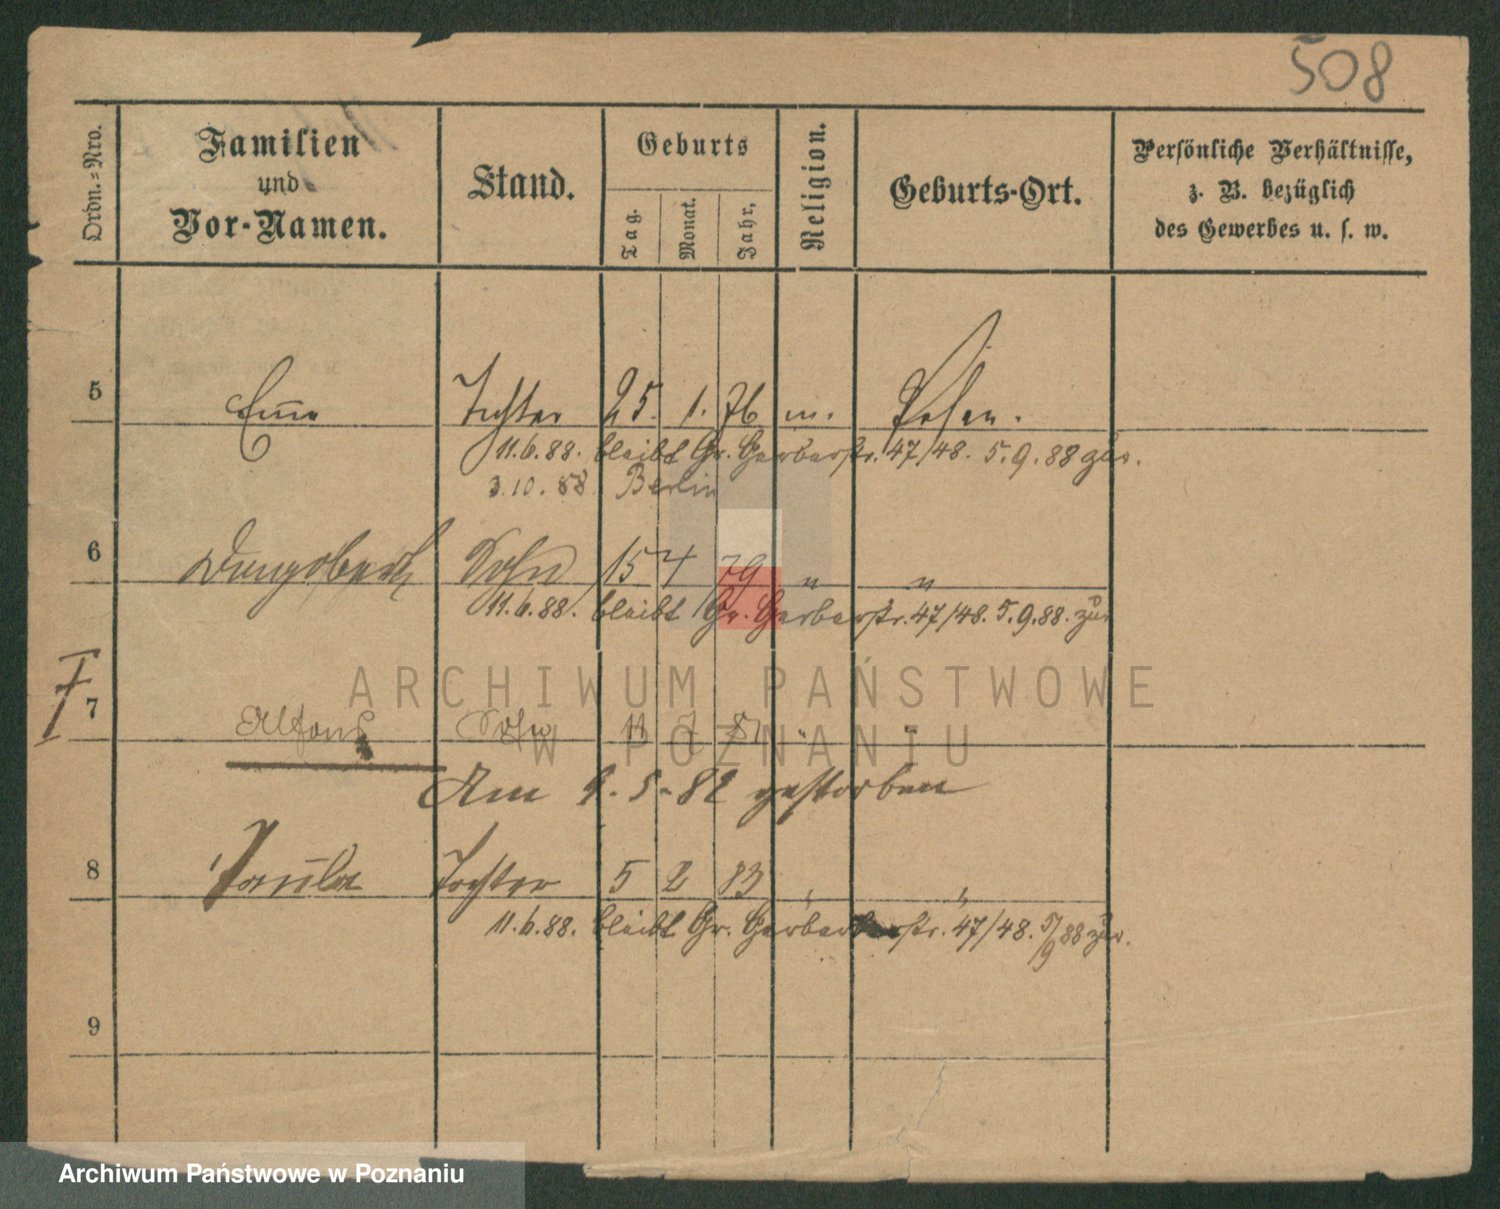 508
Ordn.=Nro.
Familien
und
Vor-Namen.
Stand.
Geburts
Tag.
Monat.
Jahr,
Religion.
Geburts-Ort.
Persönliche Verhältnisse,
z. B. bezüglich
des Gewerbes u. s. w.
5 Tochter 25. 1. 76 m. Posen.
11.6.88. bleibt Gr. Gerberstr. 47/48. 5.9.88 zur.
3.10.88 Berlin
6 Sohn 15 4 79 " "
11.6.88. bleibt Gr. Gerberstr. 47/48. 5.9.88. zur
7 Alfons Sohn 11 81 " "
Am 9-5-82 gestorben
8 Paula Tochter 5 2 83 " "
11.6.88. bleibt Gr. Gerberstr. 47/48. 5/9 88 zur.
9
ARCHIWUM PAŃSTWOWE
W POZNANIU
Archiwum Państwowe w Poznaniu